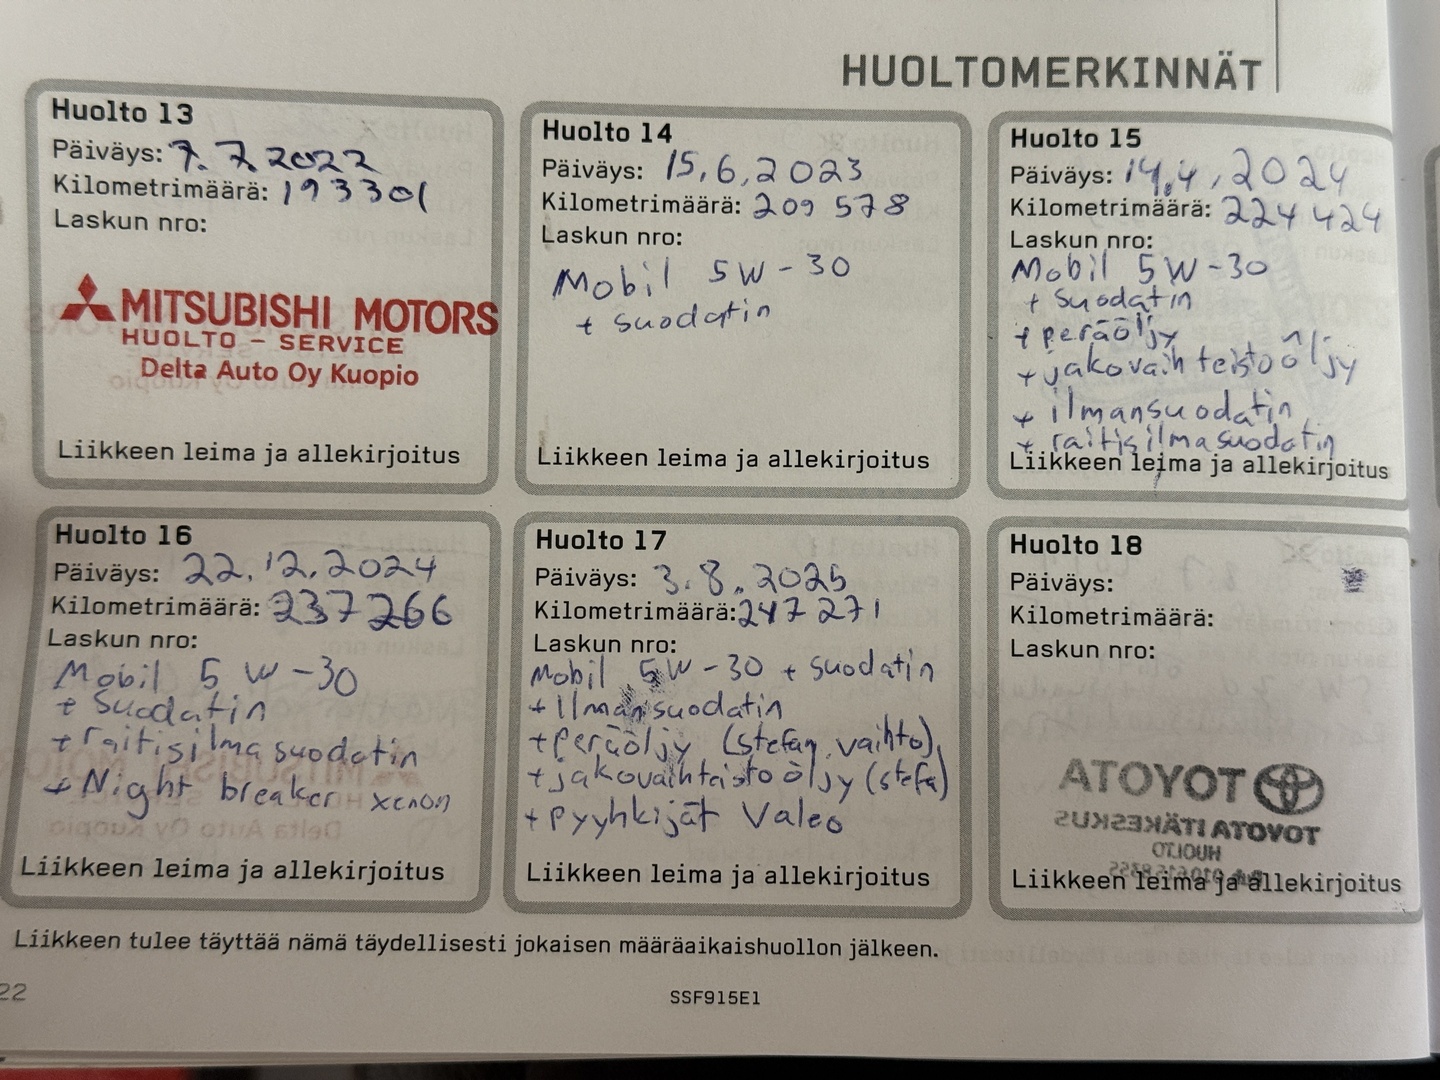 HUOLTOMERKINNÄT
Huolto 13
Päiväys: 7.7.2022
Kilometrimäärä: 193301
Laskun nro:
MITSUBISHI MOTORS
HUOLTO - SERVICE
Delta Auto Oy Kuopio
Liikkeen leima ja allekirjoitus
Huolto 14
Päiväys: 15.6.2023
Kilometrimäärä: 209 578
Laskun nro:
Mobil 5W-30
+ suodatin
Liikkeen leima ja allekirjoitus
Huolto 15
Päiväys: 14.4.2024
Kilometrimäärä: 224 424
Laskun nro:
Mobil 5W-30
+ suodatin
+ peräöljy
+ jakovaihteistoöljy
+ ilmansuodatin
+ raitisilmasuodatin
Liikkeen leima ja allekirjoitus
Huolto 16
Päiväys: 22.12.2024
Kilometrimäärä: 237 266
Laskun nro:
Mobil 5W-30
+ suodatin
+ raitisilmasuodatin
+ Night breaker xenon
Liikkeen leima ja allekirjoitus
Huolto 17
Päiväys: 3.8.2025
Kilometrimäärä: 247 271
Laskun nro:
Mobil 5W-30 + suodatin
+ Ilmansuodatin
+ peräöljy (stefan vaihto)
+ jakovaihteistoöljy (stefa)
+ pyyhkijät Valeo
Liikkeen leima ja allekirjoitus
Huolto 18
Päiväys:
Kilometrimäärä:
Laskun nro:
TOYOTA
TOYOTA ITÄKESKUS
HUOLTO
Liikkeen leima ja allekirjoitus
Liikkeen tulee täyttää nämä täydellisesti jokaisen määräaikaishuollon jälkeen.
22
SSF915E1